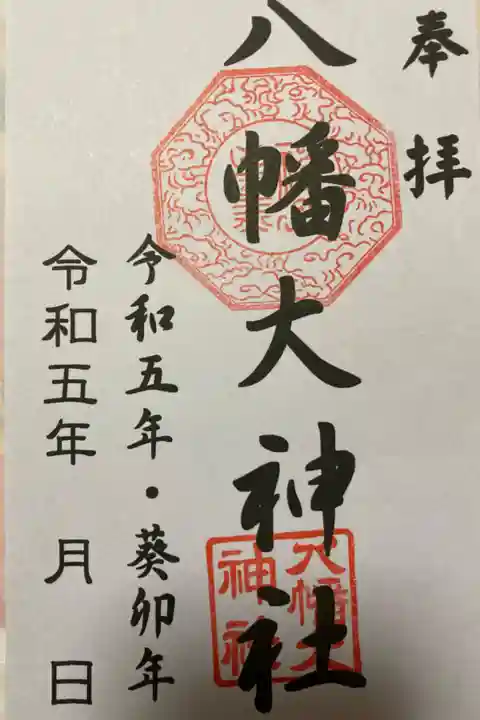 奉拝
八幡大神社
八幡大神社
令和五年・葵卯年
令和五年 月 日